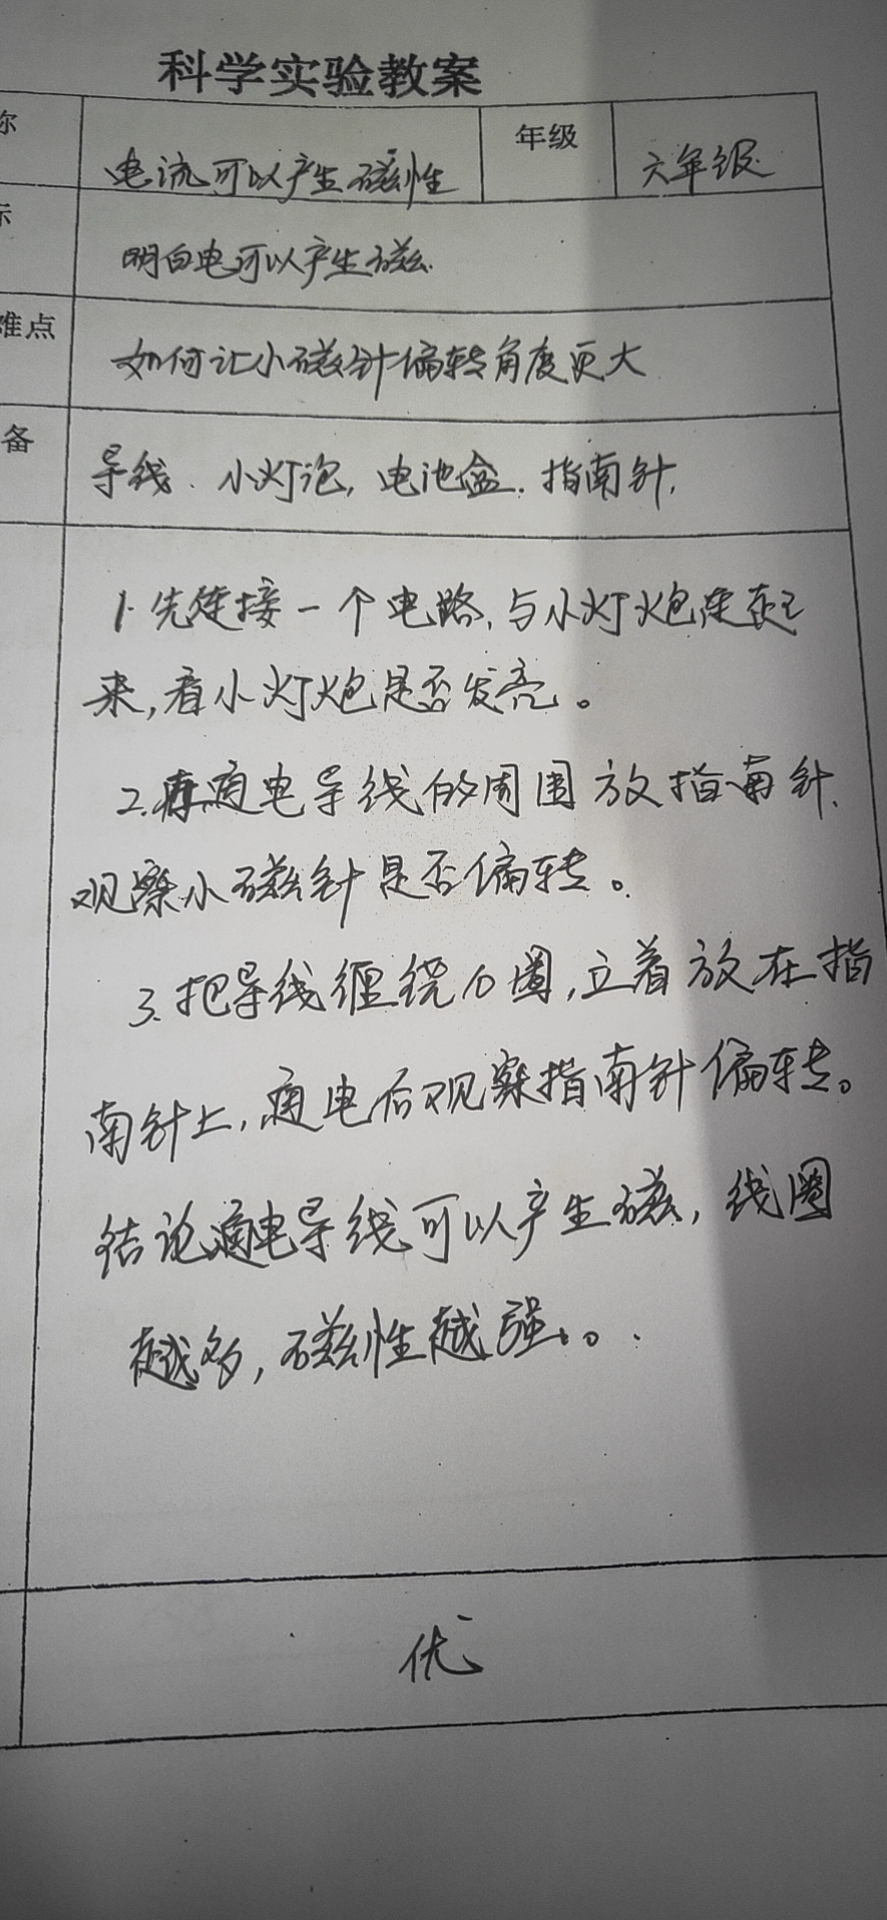 科学实验教案
称 电流可以产生磁性 年级 六年级
示 明白电可以产生磁.
难点 如何让小磁针偏转角度更大
备 导线、小灯泡,电池盒.指南针,
1.先连接一个电路,与小灯炮连起
来,看小灯炮是否发亮。
2.再通电导线的周围放指南针,
观察小磁针是否偏转。
3.把导线缠绕10圈,立着放在指
南针上,通电后观察指南针偏转。
结论通电导线可以产生磁,线圈
越多,磁性越强。
优